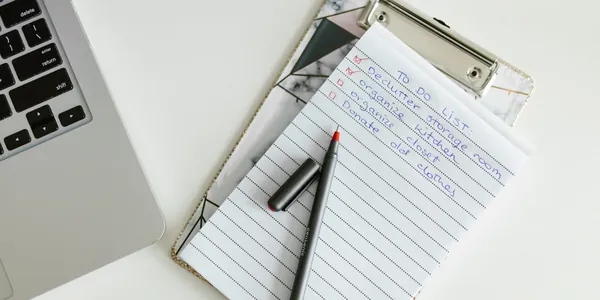 TO DO LIST:
declutter storage room
organize kitchen
organize closet
Donate old clothes
delete
enter
return
shift